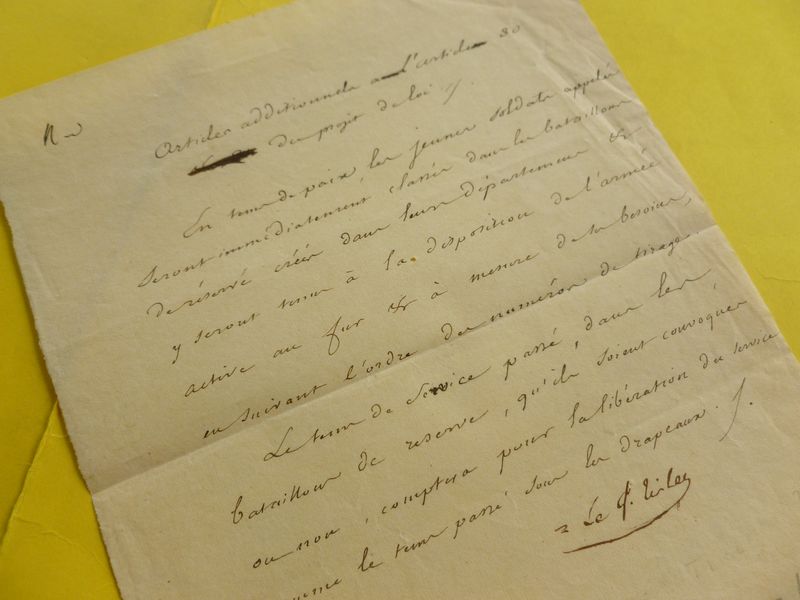 N
Articles additionnels à l'article 30
du projet de loi
En tems de paix, les jeunes soldats appelés
seront immédiatement classés dans les bataillons
de réserve créés dans leurs départemens &
y seront tenus à la disposition de l'armée
active au fur & à mesure de ses besoins,
en suivant l'ordre des numéros de tirage.
Le tems de service passé, dans les
bataillons de reserve, qu'ils soient convoqués
ou non, comptera pour la libération du service
comme le tems passé sous les drapeaux.
= Le G.